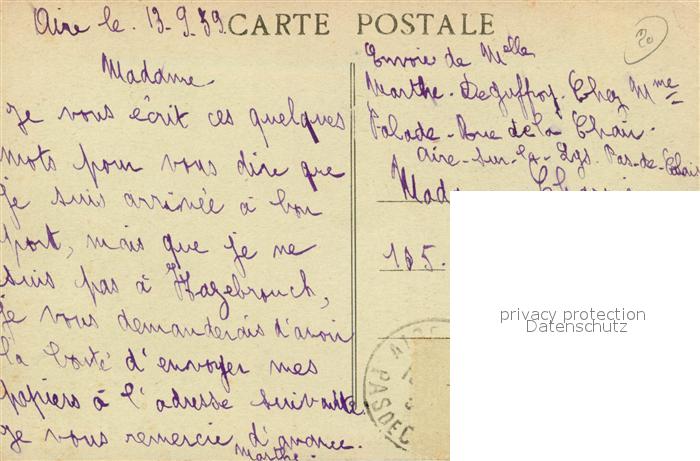 Aire le. 13.9.39.
CARTE POSTALE
20
Madame
Je vous écrit ces quelques
mots pour vous dire que
je suis arrivée à bon
port, mais que je ne
suis pas à Hazebrouch,
je vous demanderais d'avoir
la bonté d'envoyer mes
papiers à l'adresse suivante.
Je vous remercie d'avance.
Marthe.
Envoie de Melle
Marthe. Deguffroy. Chez Mme
Palade. Rue de la
Aire-sur-la-Lys. Pas-de-Calais
Mad
155.
PAS DE C
privacy protection
Datenschutz